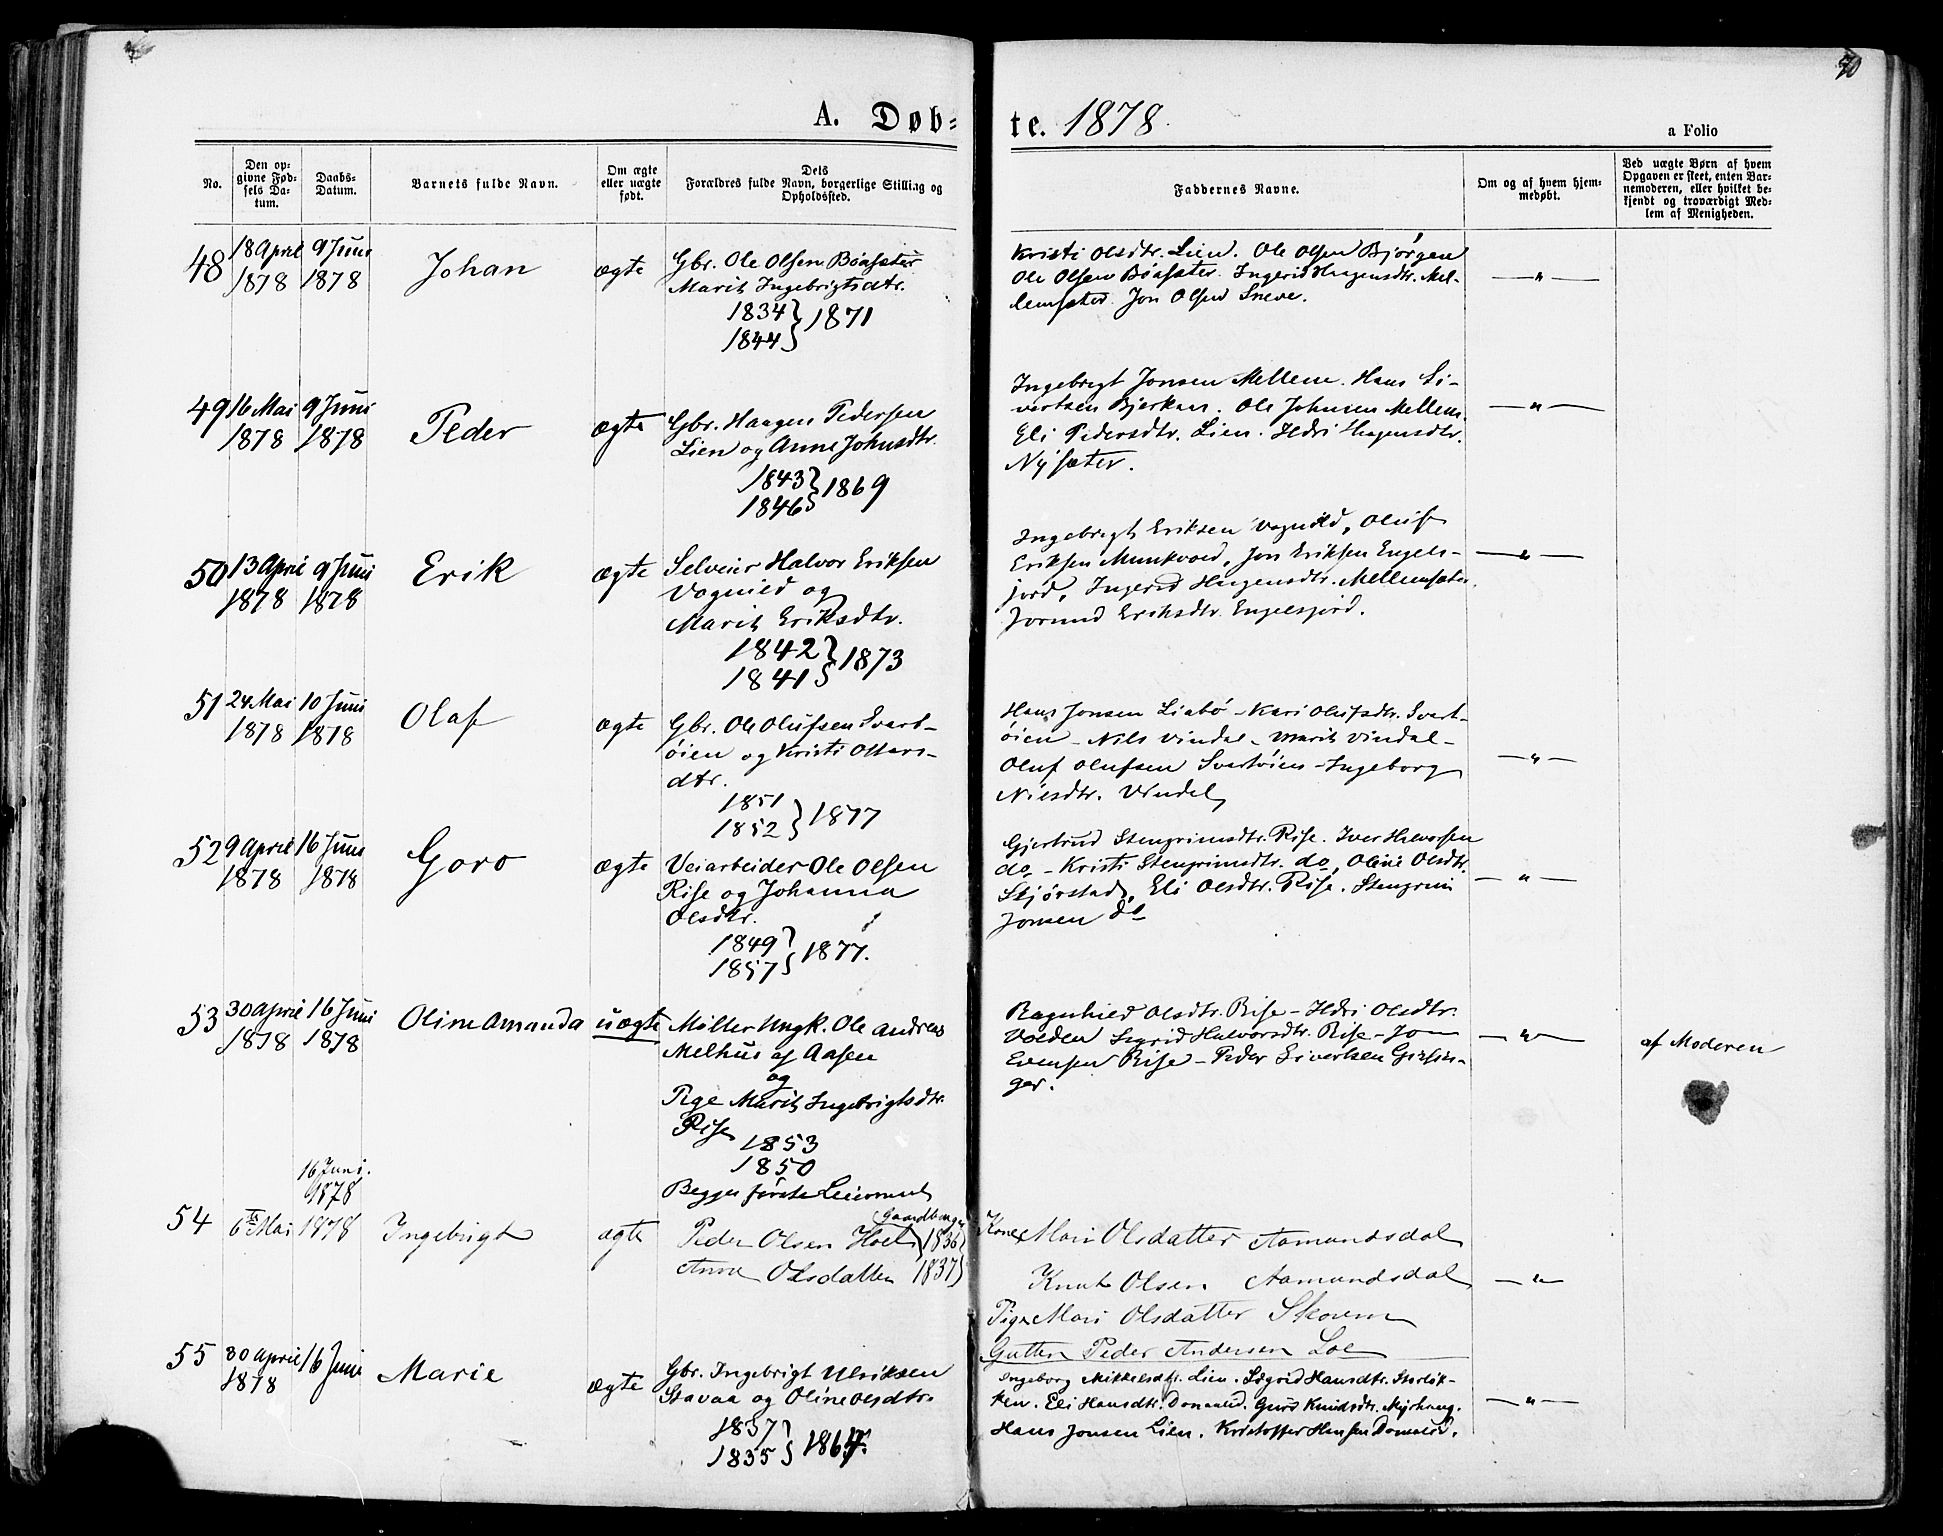 70
A. Døb= te. 1878
a Folio
No.
Den op=
givne Fød=
sels Da=
tum.
Daabs=
Datum.
Barnets fulde Navn.
Om ægte
eller uægte
født.
Dets
Forældres fulde Navn, borgerlige Stilling og
Opholdssted.
Faddernes Navne.
Om og af hvem hjem=
medøbt.
Ved uægte Børn af hvem
Opgaven er skeet, enten Bar=
nemoderen, eller hvilket be=
kjendt og troværdigt Med=
lem af Menigheden.
48
18 April
1878
9 Juni
1878
Johan
ægte
Gbr. Ole Olsen Bøasæter
Marit Ingebrigtsdtr.
1834
1844 } 1871
Kristi Olsdtr. Lien. Ole Olsen Bjørgen
Ole Olsen Bøasæter. Ingerid Haagensdtr. Mel-
lemsæter. Jon Olsen Sneve.
— " —
49
16 Mai
1878
9 Juni
1878
Peder
ægte
Gbr. Haagen Pedersen
Lien og Anne Johnsdtr.
1843
1846 } 1869
Ingebrigt Jonsen Mellem. Hans Si-
vertsen Bjerkaas. Ole Johnsen Mellem
Eli Pedersdtr. Lien. Ildri Haagensdtr.
Nysæter.
— " —
50
13 April
1878
9 Juni
1878
Erik
ægte
Selveier Halvor Eriksen
Vognild og
Marit Eriksdtr.
1842
1841 } 1873
Ingebrigt Eriksen Vognild, Oluf
Eriksen Munkvold, Jon Eriksen Engels-
jord, Ingerid Haagensdtr. Mellemsæter
Jorund Eriksdtr. Engelsjord.
— " —
51
24 Mai
1878
10 Juni
1878
Olaf
ægte
Gbr. Ole Olufsen Svart-
øien og Kristi Ottars-
dtr.
1851
1852 } 1877
Hans Jonsen Liabø - Kari Olufsdtr. Svart-
øien - Nils Vindal - Marit Vindal -
Oluf Olufsen Svartøien - Ingeborg
Nilsdtr. Vindal
— " —
52
9 April
1878
16 Juni
1878
Goro
ægte
Veiarbeider Ole Olsen
Rise og Johanna
Olsdtr.
1849
1857 } 1877.
Gjertrud Stengrimsdtr. Rise. Iver Halvorsen
do - Kristi Stengrimsdtr. do, Oline Olsdtr.
Stjørstad, Eli Olsdtr. Rise. Stengrim
Jonsen do
— " —
53
30 April
1878
16 Juni
1878
Oline Amanda
uægte
Møller Ungk. Ole Andreas
Melhus af Aasen
og
Pige Marit Ingebrigtsdtr.
Rise
1853
1850
Begges første Leiermaal
Ragnhild Olsdtr. Rise - Ildri Olsdtr.
Volden Sigrid Halvorsdtr. Rise - Jon
Evensen Rise - Peder Sivertsen Gisin-
ger.
— " —
af Moderen
54
6te Mai
16 Juni.
1878
1878
Ingebrigt
ægte
Gaardbruger
Peder Olsen Hoel 1836
Anne Olsdatter 1837
Kone Mari Olsdatter Aamundsdal
Knut Olsen Aamundsdal
Pige Mari Olsdatter Skoven
Gutten Peder Andersen Loe
— " —
55
30 April
1878
16 Juni
Marie
ægte
Gbr. Ingebrigt Ulriksen
Stavaa og Oline Olsdtr.
1837
1835 } 1864.
Ingeborg Mikkelsdtr. Lien. Sigrid Hansdtr. Storløk-
ken. Eli Hansdtr. Donali. Guro Knudsdtr. Myrhaug.
Hans Jonsen Lien. Kristoffer Hansen Donali.
— " —